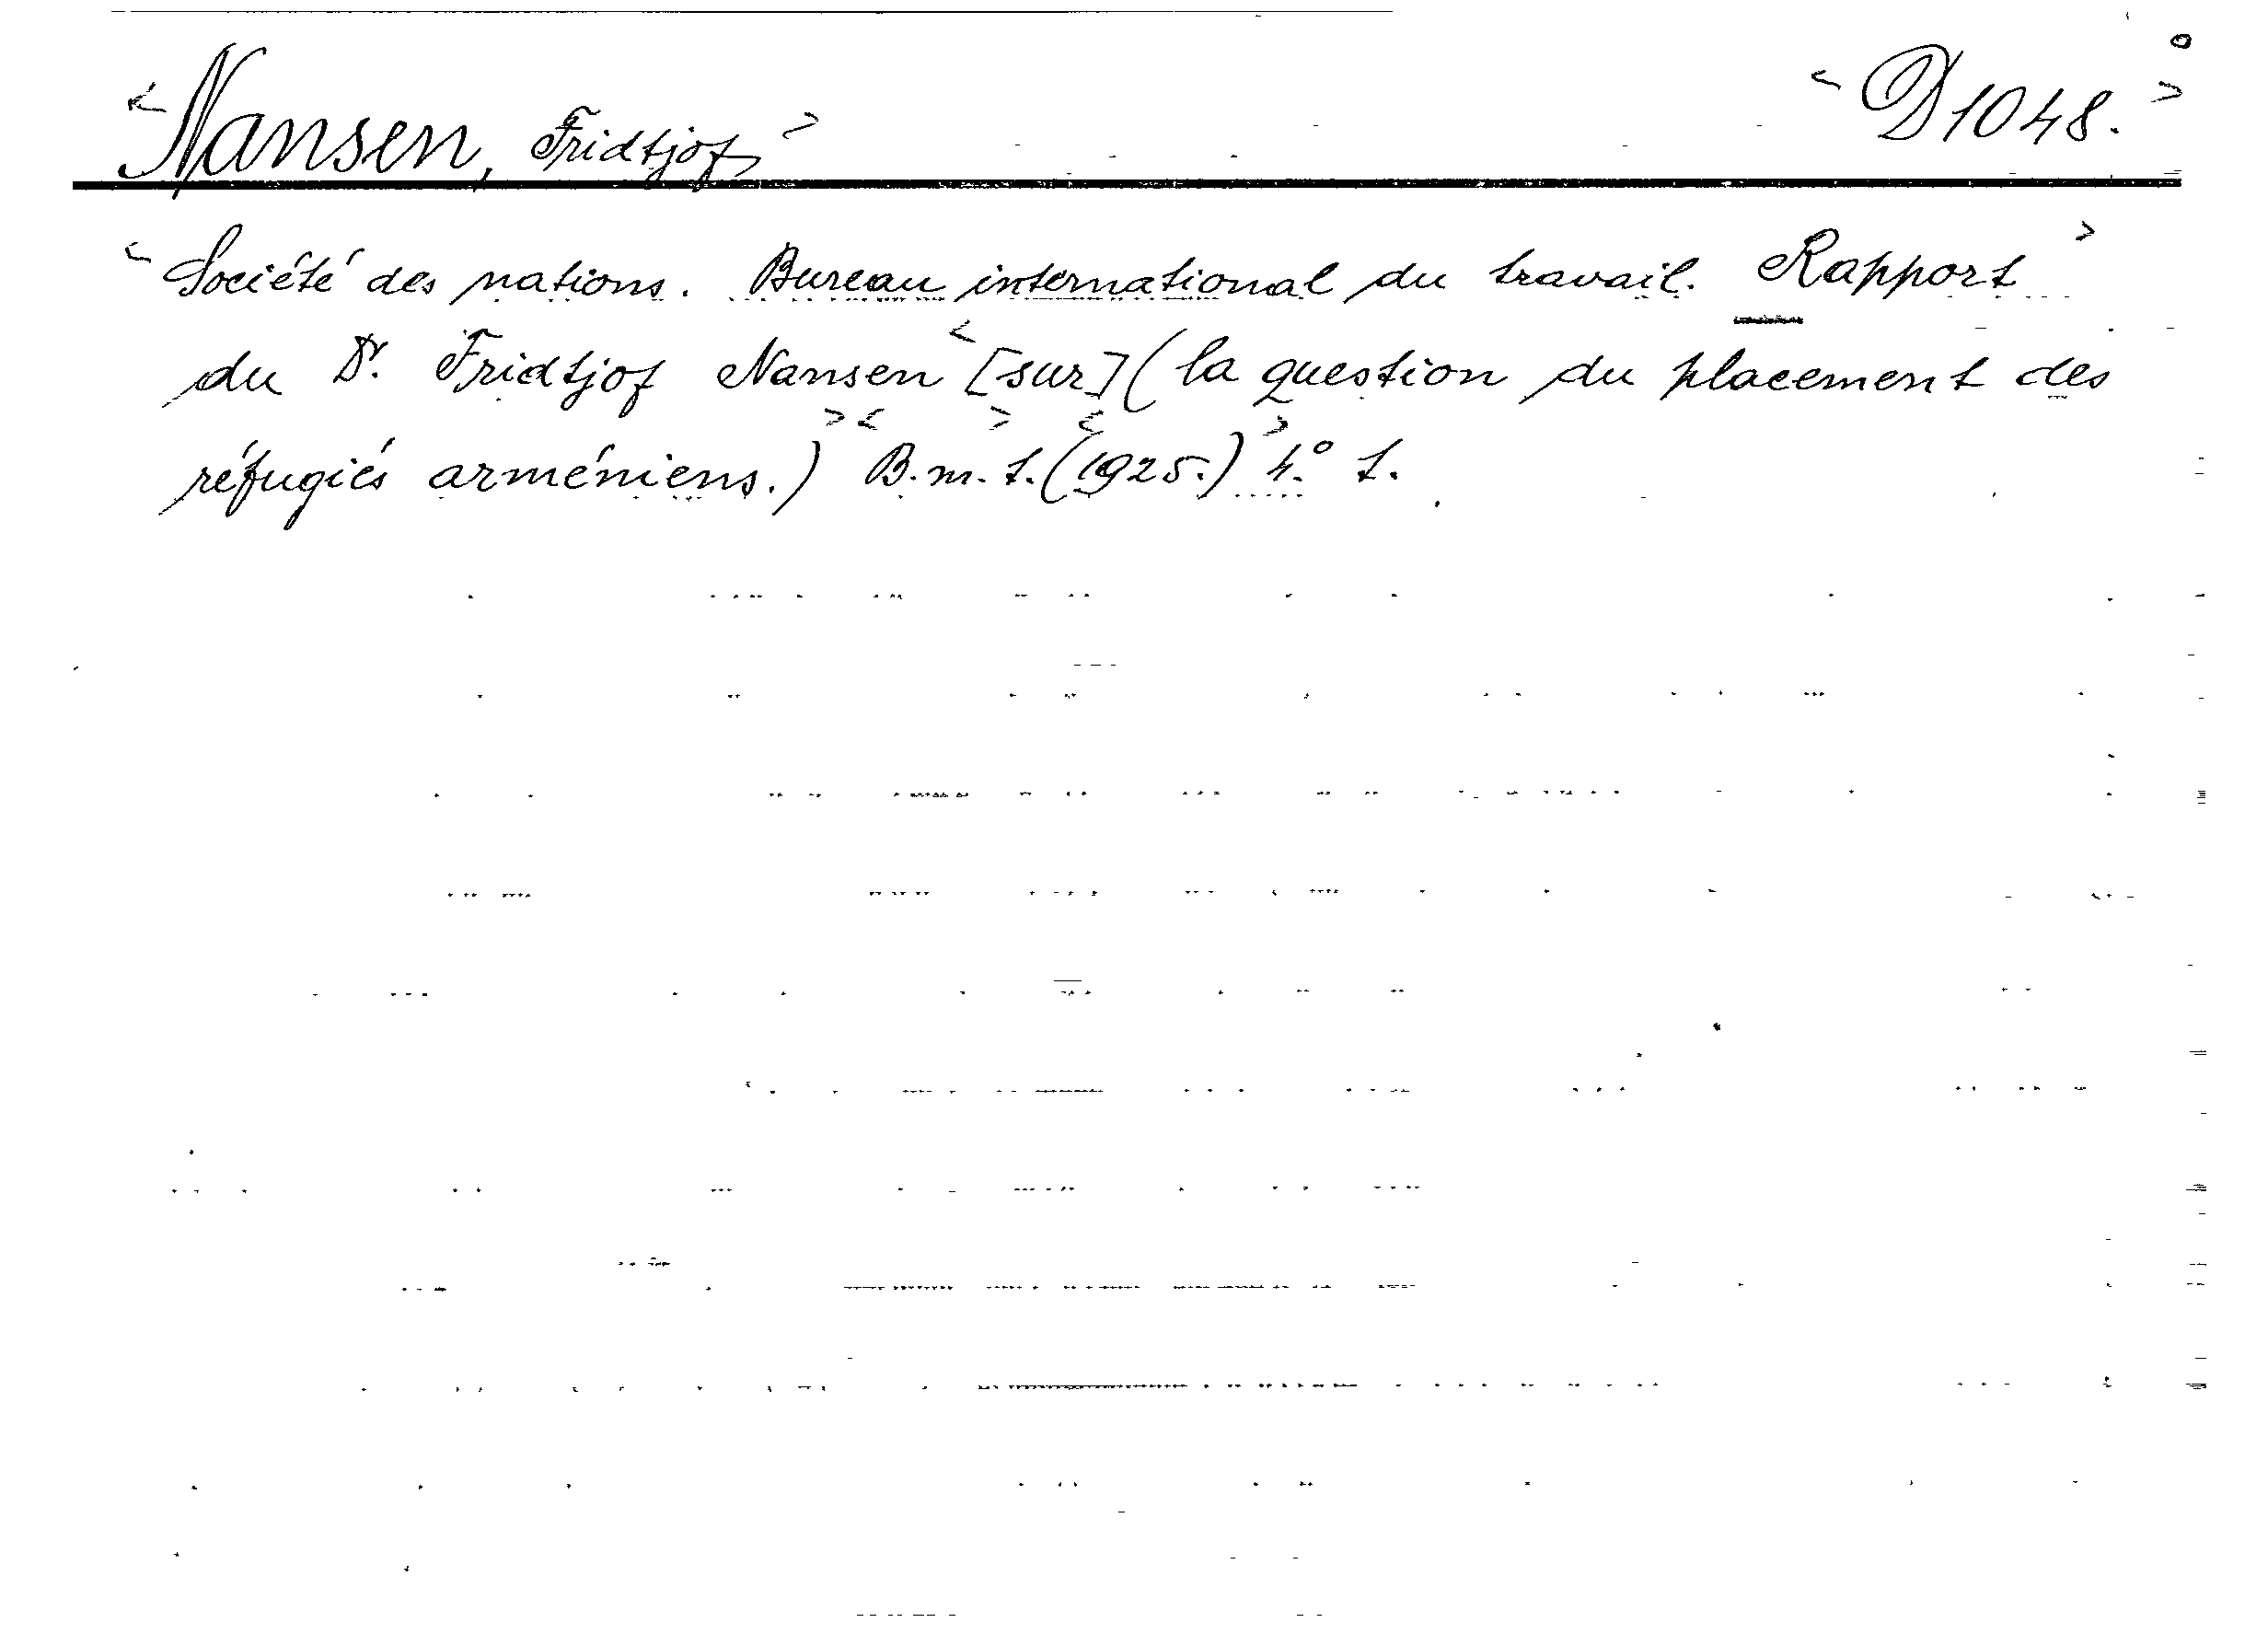 <Nansen, Fridtjof> <D1048.>
<Société des nations. Bureau international du travail. Rapport>
du Dr. Fridtjof Nansen <[sur] (la question du placement des
réfugiés arméniens.)> <B.m.t.> <(1925.)> 4.º t.